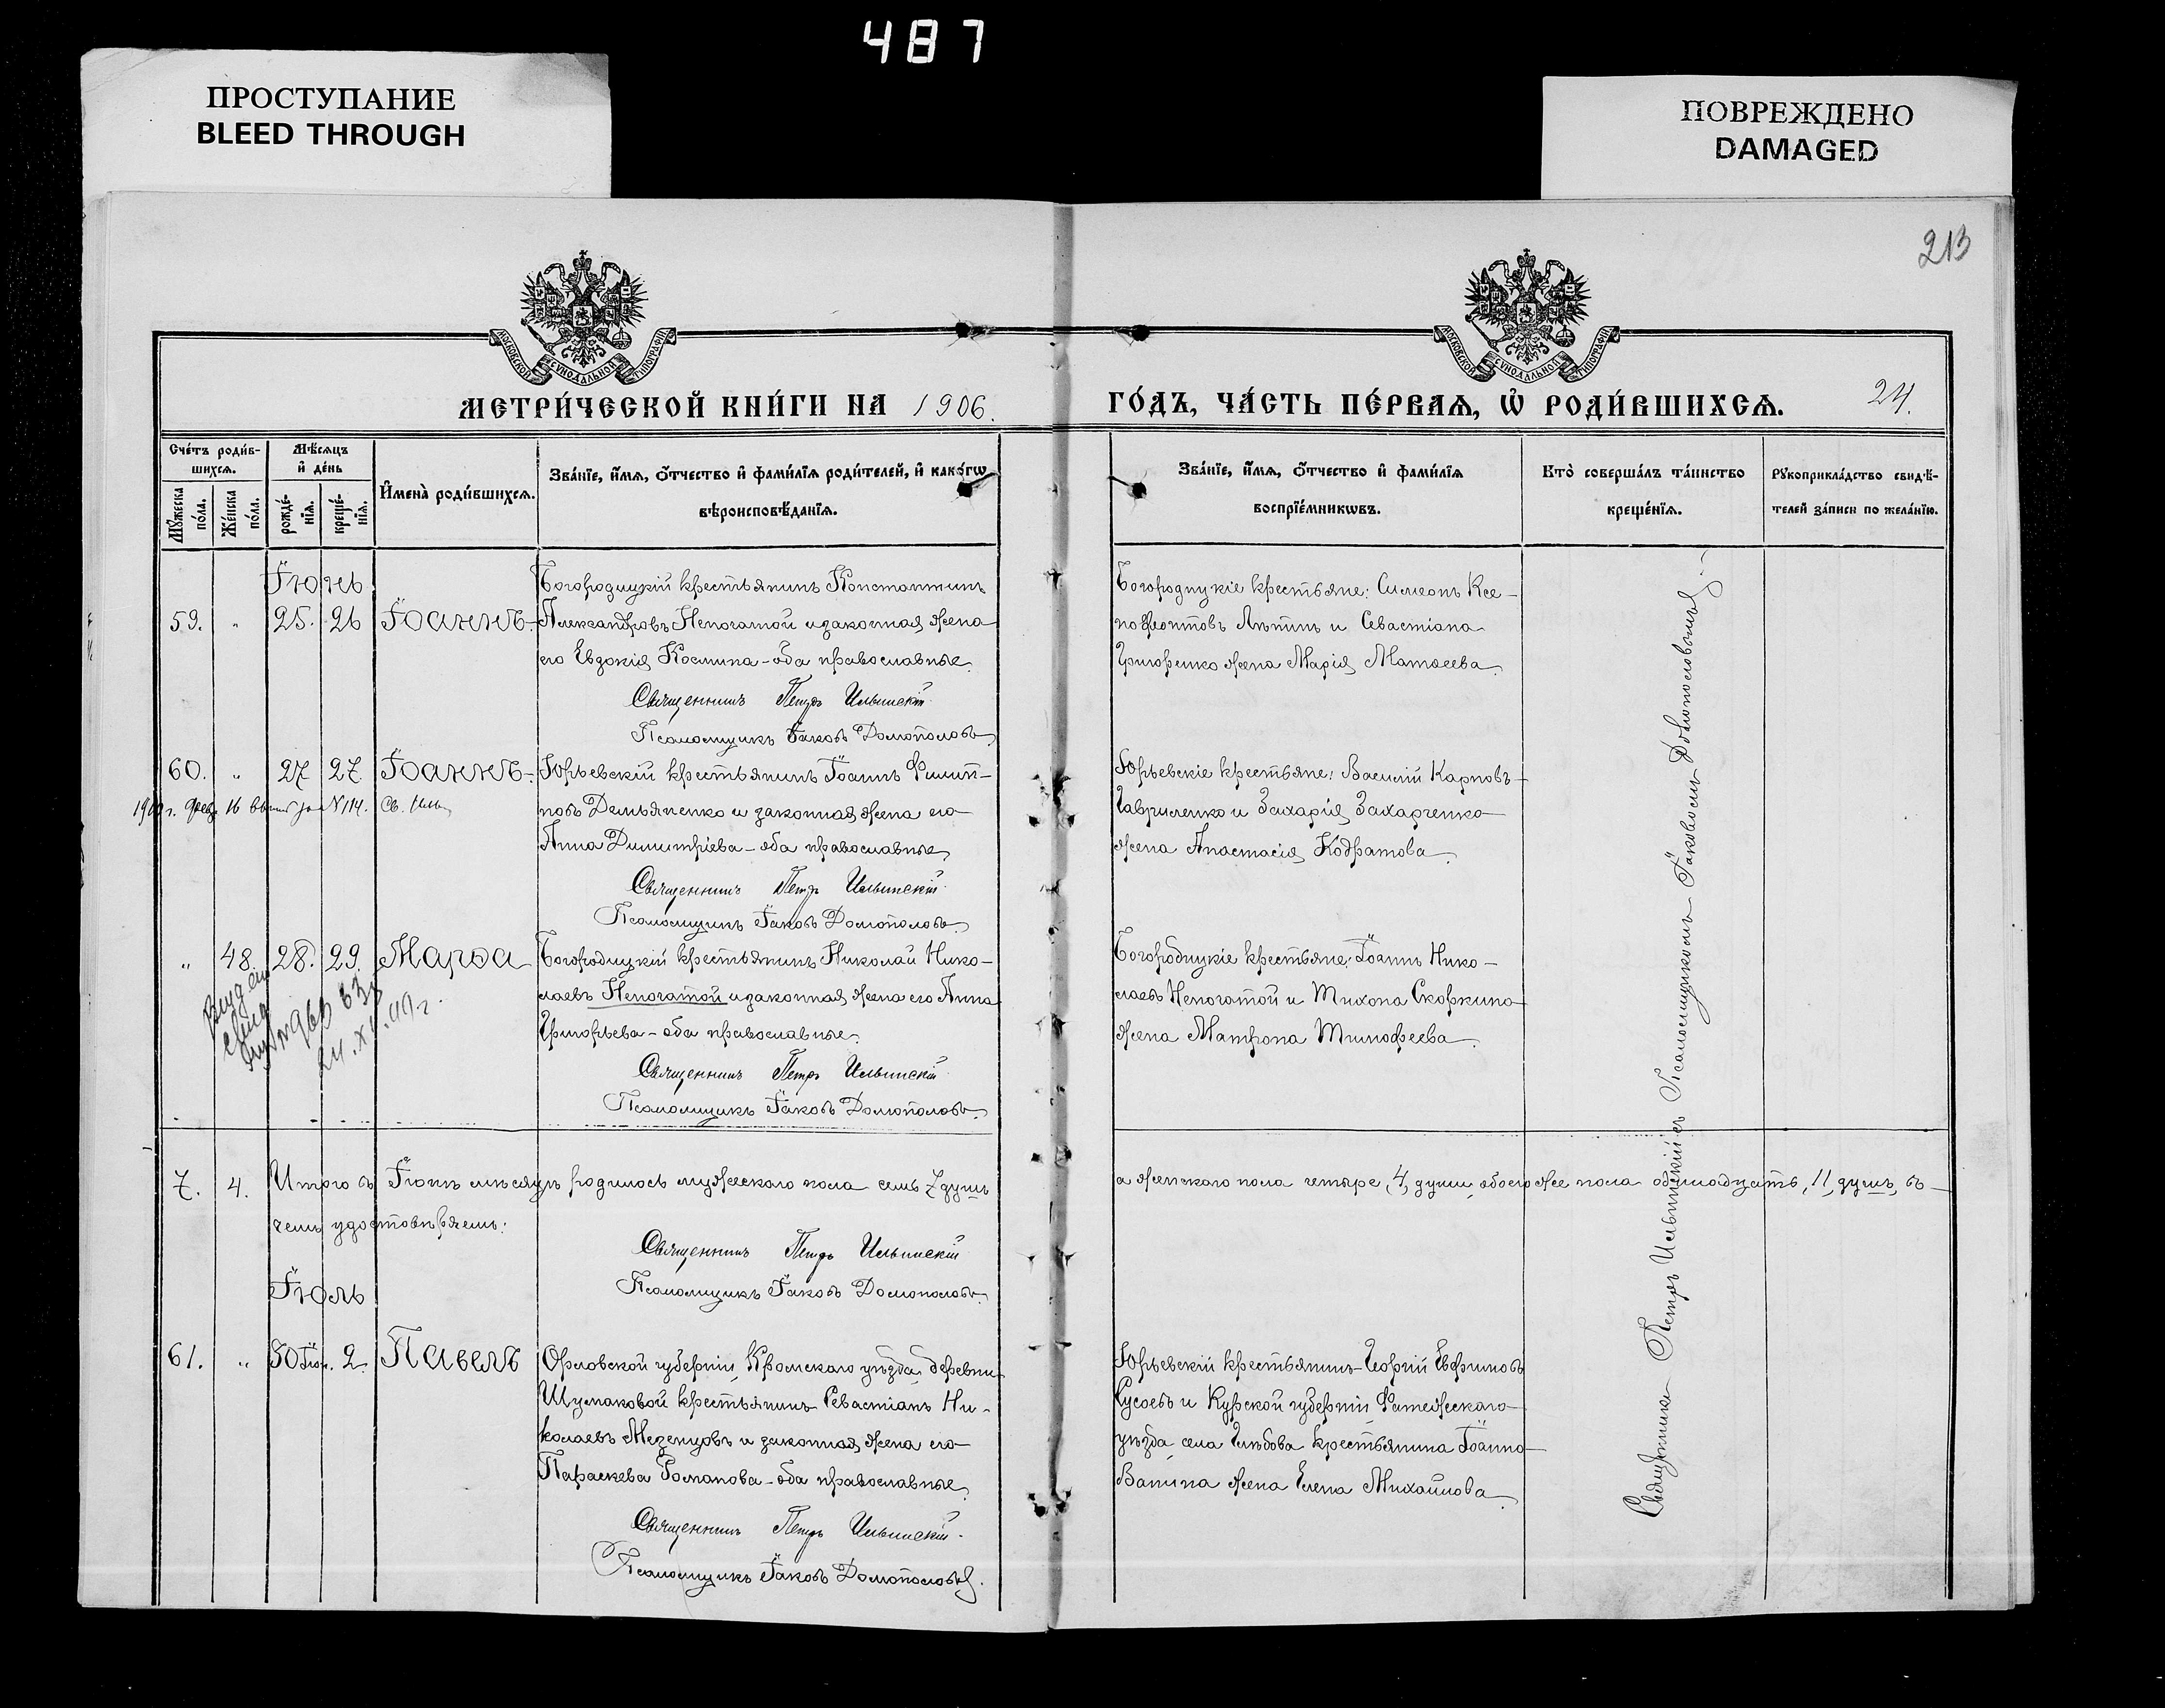 487
ПРОСТУПАНИЕ
BLEED THROUGH
ПОВРЕЖДЕНО
DAMAGED
213
МОСКОВСКОЙ СѴНОДАЛЬНОЙ ТИПОГРАФІИ
МОСКОВСКОЙ СѴНОДАЛЬНОЙ ТИПОГРАФІИ
МЕТРИ́ЧЕСКОЙ КНИ́ГИ НА 1906.
ГО́ДЪ, ЧА́СТЬ ПЕ́РВАѦ, Ѡ҆ РОДИ́ВШИХСѦ. 24.
Сче́тъ роди́в-
шихсѧ.
Мꙋ́жеска по́ла.
Же́нска по́ла.
Мѣ́сѧцъ
и҆ де́нь
рожде́-
нїѧ.
креще́-
нїѧ.
И҆мена̀ роди́вшихсѧ.
Зва́нїе, и҆́мѧ, ѻ҆́тчество и҆ фами́лїѧ роди́телей, и҆ како́гѡ
вѣроисповѣ́данїѧ.
Зва́нїе, и҆́мѧ, ѻ҆́тчество и҆ фами́лїѧ
воспрїе́мникѡвъ.
Кто̀ соверша́лъ та́инство
креще́нїѧ.
Рꙋкоприкла́дство свидѣ́-
телей за́писи по жела́нїю.
Іюнь
59. " 25. 26 Іоаннъ.
Богородицкій крестьянинъ Константинъ
Александровъ Непочатой и законная жена
его Евдокія Космина - оба православные.
Священникъ Петръ Ильинскій
Псаломщикъ Іаковъ Домополовъ
Богородицкіе крестьяне: Симеонъ Ксе-
нофонтовъ Лѣтинъ и Севастіана
Григоренко жена Марія Матѳеева.
60. " 27 27. Іоаннъ.
16 № 114.
Юрьевскій крестьянинъ Іоаннъ Филип-
повъ Демьяненко и законная жена его
Анна Димитріева - оба православные.
Священникъ Петръ Ильинскій
Псаломщикъ Іаковъ Домополовъ
Юрьевскіе крестьяне: Василій Карповъ
Гавриленко и Захарія Захарченко
жена Анастасія Кодратова.
" 48. 28. 29. Марѳа
Богородицкій крестьянинъ Николай Нико-
лаевъ Непочатой и законная жена его Анна
Григорьева - оба православные.
Священникъ Петръ Ильинскій
Псаломщикъ Іаковъ Домополовъ.
Богородицкіе крестьяне: Іоаннъ Нико-
лаевъ Непочатой и Тихона Скоркина
жена Матрона Тимофеева.
7. 4. Итого въ Іюнѣ мѣсяцѣ родилось мужескаго пола семь 7 душъ
а женскаго пола четыре, 4, души, обоего же пола одиннадцать, 11, душъ, въ
чемъ удостовѣряемъ.
Священникъ Петръ Ильинскій
Псаломщикъ Іаковъ Домополовъ.
Іюль
61. " 30 Іюн. 2. Павелъ
Орловской губерніи, Кромскаго уѣзда, деревни
Шумаковой крестьянинъ Севастіанъ Ни-
колаевъ Мезенцовъ и законная жена его
Параскева Романова - оба православные.
Священникъ Петръ Ильинскій.
Псаломщикъ Іаковъ Домополовъ.
Юрьевскій крестьянинъ Георгій Евфимовъ
Гусоевъ и Курской губерніи Фатежскаго
уѣзда села Глѣбова крестьянина Іоанна
Ванина жена Елена Михаилова.
Священникъ Петръ Ильинскій съ Псаломщикомъ Іаковомъ Домополовымъ.